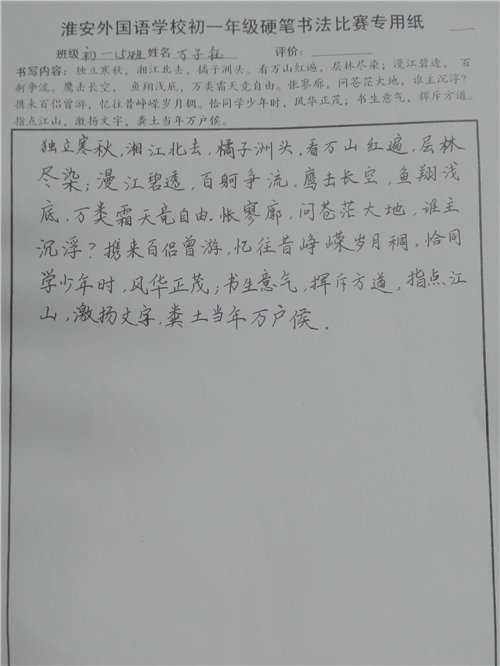 淮安外国语学校初一年级硬笔书法比赛专用纸
班级 初一15班 姓名 万子钰 评价：
书写内容：独立寒秋，湘江北去，橘子洲头。看万山红遍，层林尽染；漫江碧透， 百
舸争流。鹰击长空， 鱼翔浅底，万类霜天竞自由。怅寥廓，问苍茫大地，谁主沉浮？
携来百侣曾游，忆往昔峥嵘岁月稠。恰同学少年时，风华正茂；书生意气，挥斥方遒。
指点江山，激扬文字，粪土当年万户侯。
独立寒秋，湘江北去，橘子洲头。看万山红遍，层林
尽染；漫江碧透，百舸争流，鹰击长空，鱼翔浅
底，万类霜天竞自由。怅寥廓，问苍茫大地，谁主
沉浮？携来百侣曾游，忆往昔峥嵘岁月稠。恰同
学少年时，风华正茂；书生意气，挥斥方遒。指点江
山，激扬文字，粪土当年万户侯。